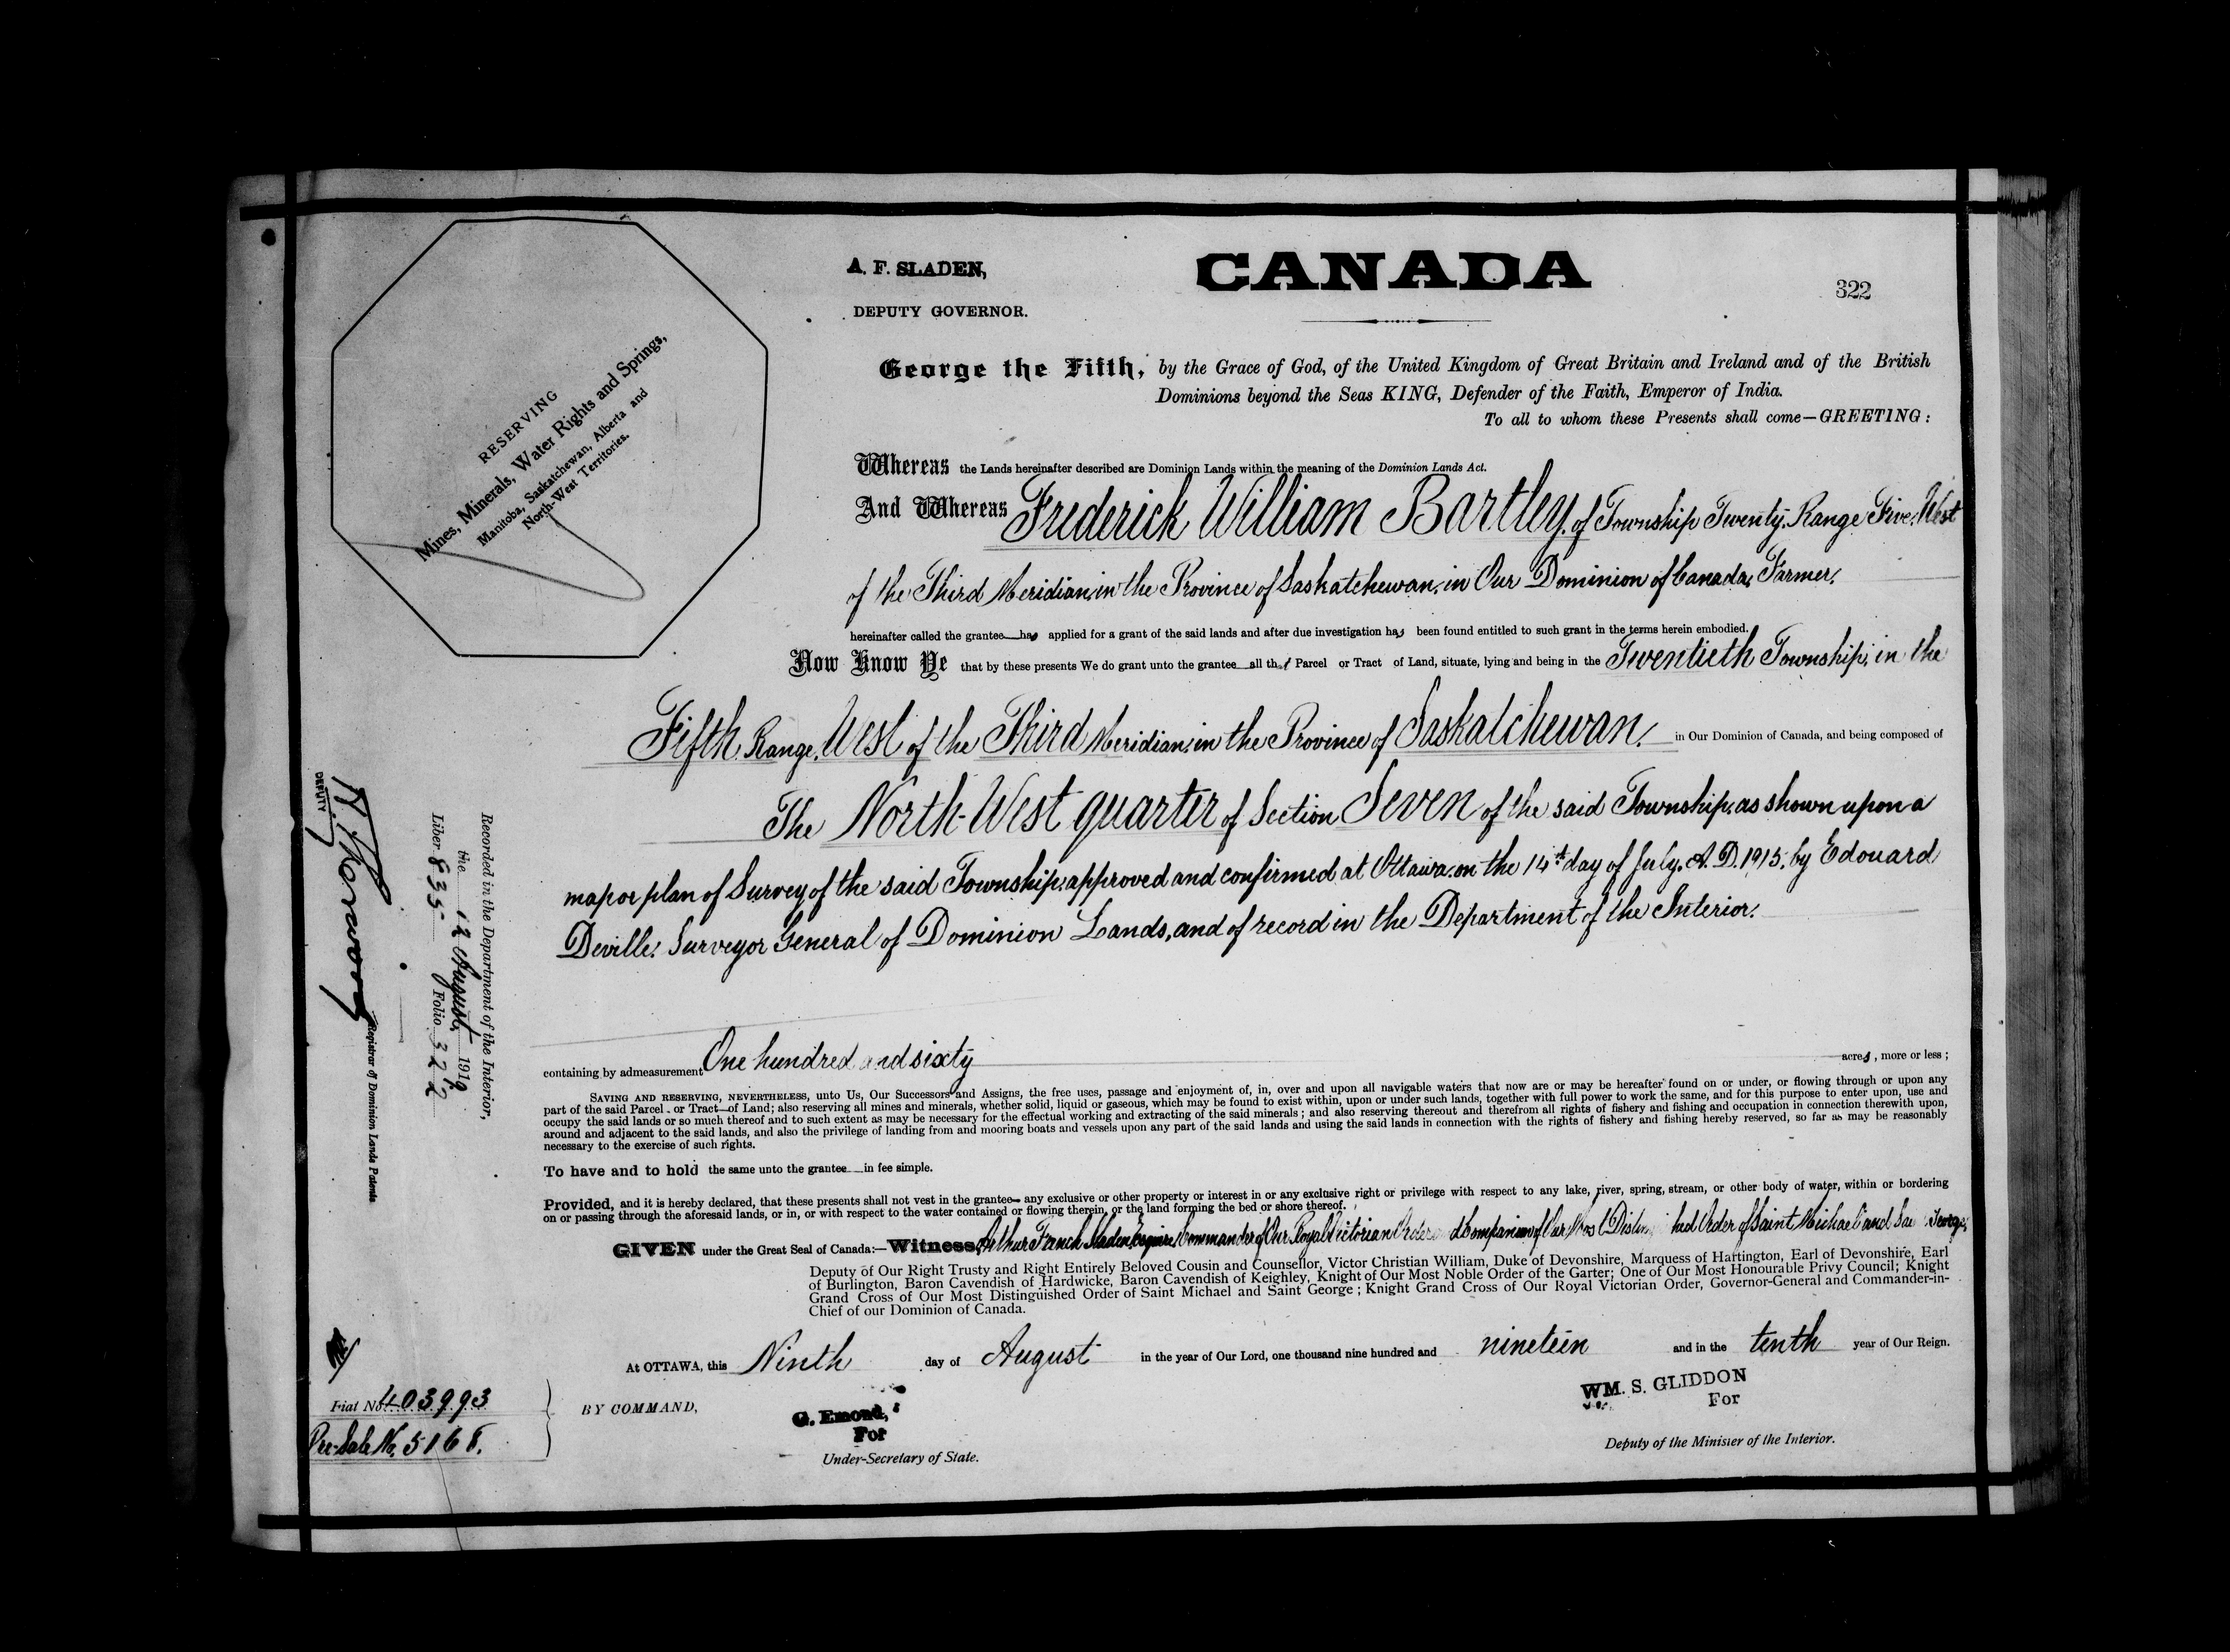 A. F. SLADEN,
DEPUTY GOVERNOR.
CANADA
322
RESERVING
Mines, Minerals, Water Rights and Springs,
Manitoba, Saskatchewan, Alberta and
North-West Territories.
George the Fifth, by the Grace of God, of the United Kingdom of Great Britain and Ireland and of the British
Dominions beyond the Seas KING, Defender of the Faith, Emperor of India.
To all to whom these Presents shall come—GREETING:
Whereas the Lands hereinafter described are Dominion Lands within the meaning of the Dominion Lands Act.
And Whereas Frederick William Bartley, of Township Twenty, Range Five, West
of the Third Meridian, in the Province of Saskatchewan, in Our Dominion of Canada, Farmer,
hereinafter called the grantee has applied for a grant of the said lands and after due investigation has been found entitled to such grant in the terms herein embodied.
Now Know Ye that by these presents We do grant unto the grantee all that Parcel or Tract of Land, situate, lying and being in the Twentieth Township, in the
Fifth Range, West of the Third Meridian, in the Province of Saskatchewan, in Our Dominion of Canada, and being composed of
The North-West quarter of Section Seven of the said Township, as shown upon a
map or plan of Survey of the said Township, approved and confirmed at Ottawa, on the 14th day of July, A.D. 1915, by Edouard
Deville, Surveyor General of Dominion Lands, and of record in the Department of the Interior.
containing by admeasurement One hundred and sixty acres, more or less;
SAVING AND RESERVING, NEVERTHELESS, unto Us, Our Successors and Assigns, the free uses, passage and enjoyment of, in, over and upon all navigable waters that now are or may be hereafter found on or under, or flowing through or upon any
part of the said Parcel or Tract of Land; also reserving all mines and minerals, whether solid, liquid or gaseous, which may be found to exist within, upon or under such lands, together with full power to work the same, and for this purpose to enter upon, use and
occupy the said lands or so much thereof and to such extent as may be necessary for the effectual working and extracting of the said minerals; and also reserving thereout and therefrom all rights of fishery and fishing and occupation in connection therewith upon,
around and adjacent to the said lands, and also the privilege of landing from and mooring boats and vessels upon any part of the said lands and using the said lands in connection with the rights of fishery and fishing hereby reserved, so far as may be reasonably
necessary to the exercise of such rights.
To have and to hold the same unto the grantee in fee simple.
Provided, and it is hereby declared, that these presents shall not vest in the grantee any exclusive or other property or interest in or any exclusive right or privilege with respect to any lake, river, spring, stream, or other body of water, within or bordering
on or passing through the aforesaid lands, or in, or with respect to the water contained or flowing therein, or the land forming the bed or shore thereof.
GIVEN under the Great Seal of Canada:—Witness, Arthur French Sladen, Esquire, Commander of Our Royal Victorian Order Companion of Our Most Order of Saint Michael and George,
Deputy of Our Right Trusty and Right Entirely Beloved Cousin and Counsellor, Victor Christian William, Duke of Devonshire, Marquess of Hartington, Earl of Devonshire, Earl
of Burlington, Baron Cavendish of Hardwicke, Baron Cavendish of Keighley, Knight of Our Most Noble Order of the Garter; One of Our Most Honourable Privy Council; Knight
Grand Cross of Our Most Distinguished Order of Saint Michael and Saint George; Knight Grand Cross of Our Royal Victorian Order, Governor-General and Commander-in-
Chief of our Dominion of Canada.
At OTTAWA, this Ninth day of August in the year of Our Lord, one thousand nine hundred and nineteen and in the tenth year of Our Reign.
BY COMMAND,
G. Emond,
For
Under-Secretary of State.
WM. S. GLIDDON
For
Deputy of the Minister of the Interior.
Recorded in the Department of the Interior,
the 12 August, 1919
Liber 835 Folio 322
DEPUTY
Registrar of Dominion Lands Patents
Fiat No. 403993
Pre-Sale No. 5168.